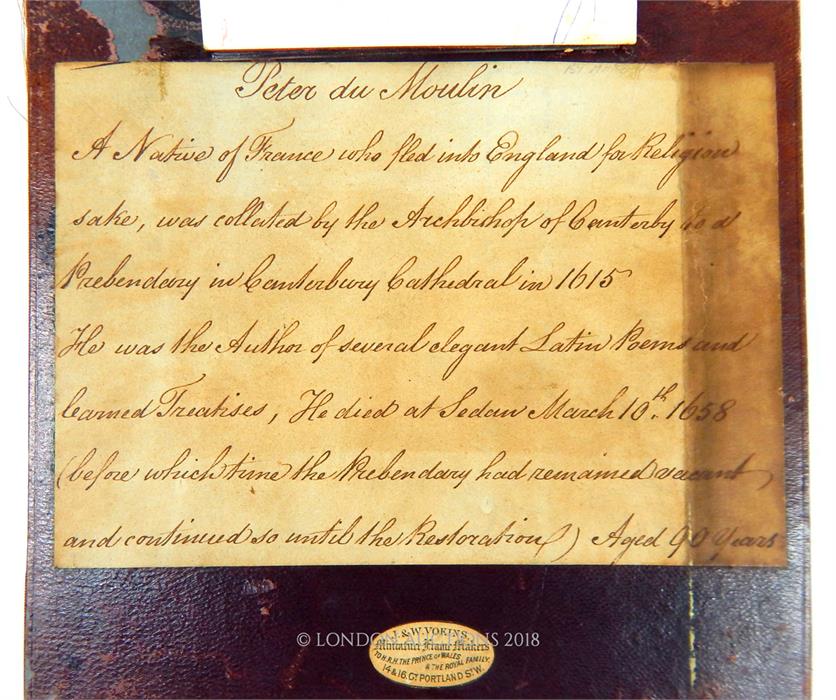 Peter du Moulin
A Native of France who fled into England for Religion
sake, was collated by the Archbishop of Canterby to a
Prebendary in Canterbury Cathedral in 1615
He was the Author of several elegant Latin Poems and
learned Treatises, He died at Sedan March 10th. 1658
(before which time the Prebendary had remained vacant
and continued so until the Restoration) Aged 90 Years
© LONDON AUCTIONS 2018
J. & W. VOKINS
Miniature Frame Makers
TO H.R.H. THE PRINCE OF WALES
& THE ROYAL FAMILY.
14 & 16. GT PORTLAND ST. W.